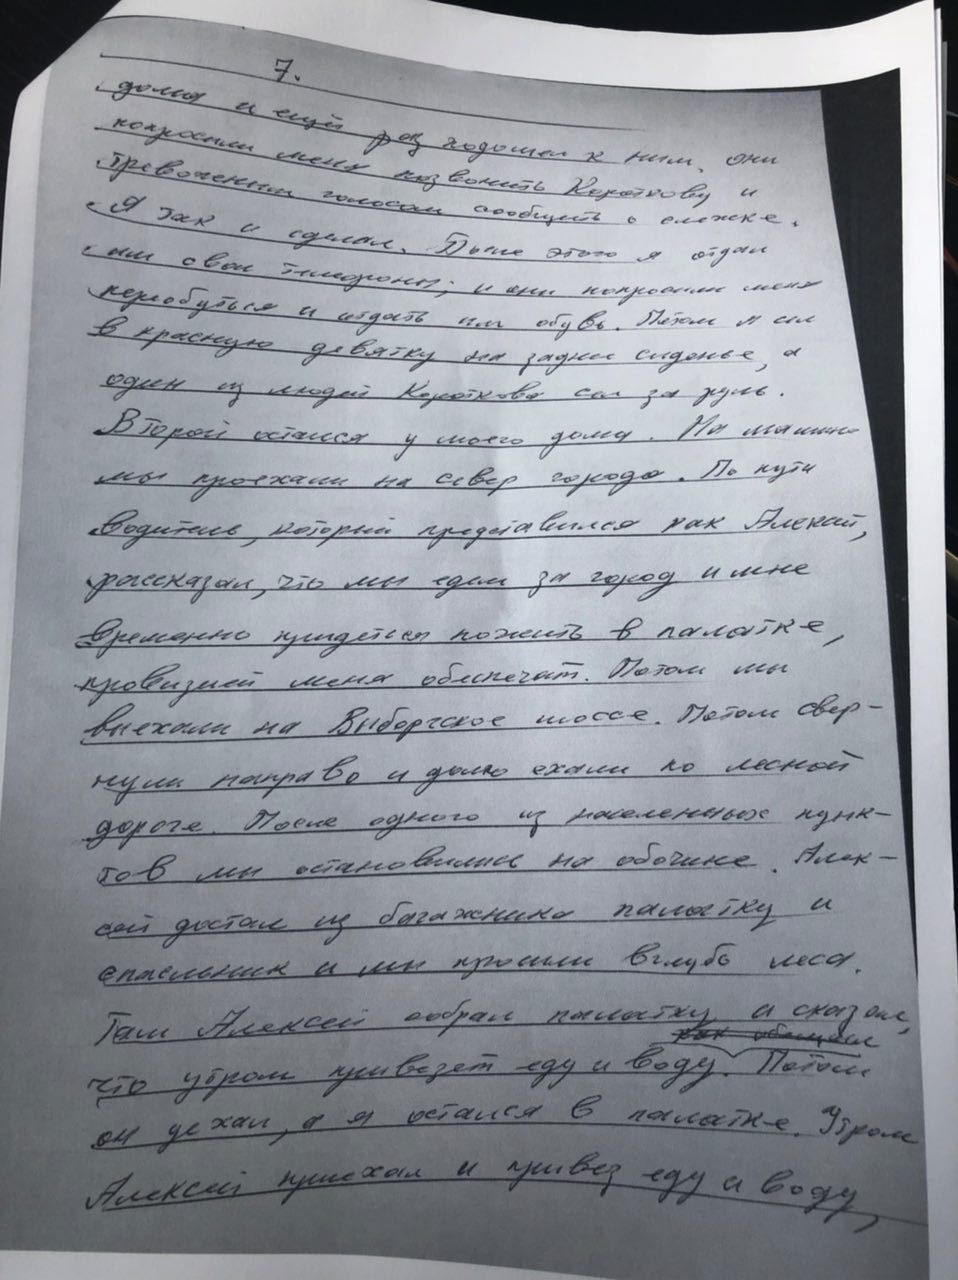 7.
дома и ещё раз подошел к ним, они
попросили меня позвонить Короткову и
тревожным голосом сообщить о слежке.
Я так и сделал. После этого я отдал
им свои телефоны, и они попросили меня
переобуться и отдать им обувь. Потом я сел
в красную девятку на заднее сиденье, а
один из людей Короткова сел за руль.
Второй остался у моего дома. На машине
мы проехали на север города. По пути
водитель, который представился как Алексей,
рассказал, что мы едем за город и мне
временно придеться пожить в палатке,
провизией меня обеспечат. Потом мы
выехали на Выборгское шоссе. Потом свер-
нули направо и долго ехали по лесной
дороге. После одного из населенных пунк-
тов мы остановились на обочине. Алек-
сей достал из багажника палатку и
спальник и мы прошли вглубь леса.
Там Алексей собрал палатку и сказал,
что утром привезет еду и воду. Потом
он уехал, а я остался в палатке. Утром
Алексей приехал и привез еду и воду,